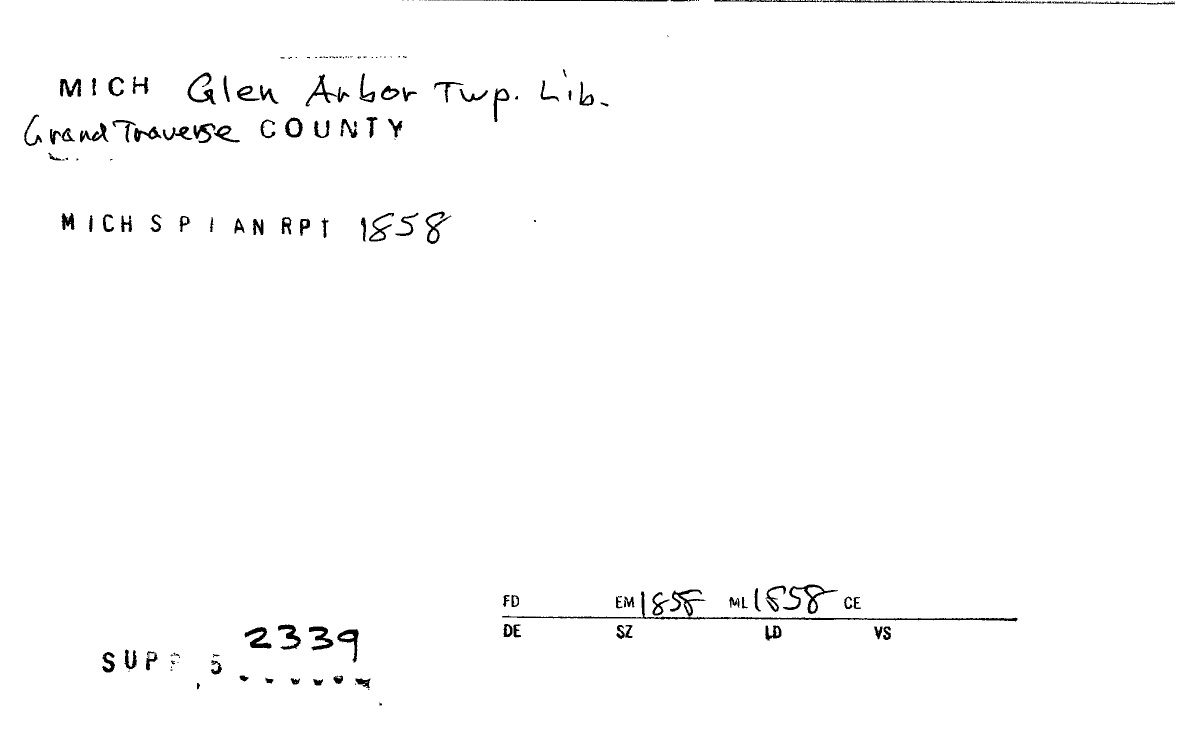 MICH Glen Arbor Twp. Lib.
Grand Traverse COUNTY
MICH S P I AN RPT 1858
FD EM 1858 ML 1858 CE
DE SZ LD VS
2339
SUPP 5